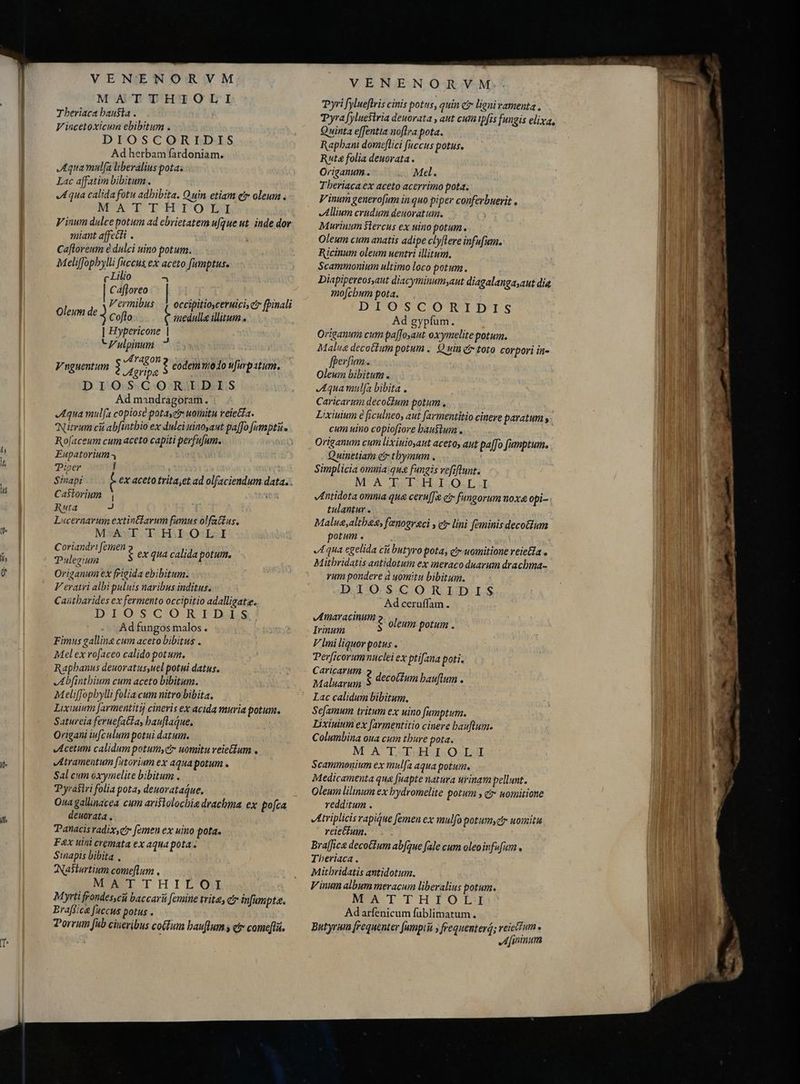 VENENORVM
MATTHIOLI
Theriaca hausta .
Vincetoxicum ebibitum .
DIOSCORIDIS
Ad herbam sardoniam.
Aqua mulsa liberalius pota.
Lac affatim bibitum .
Aqua calida fotu adhibita. Quin etiam & oleum .
MATTHIOLI
Vinum dulce potum ad ebrietatem usque ut inde dor
miant affecti .
Castoreum è dulci uino potum.
Melissophylli succus ex aceto sumptus.
Oleum de
Lilio
Castoreo
Vermibus
Costo
Hypericone
Vulpinum
occipitio,ceruici, & spinali
medullæ illitum .
Vnguentum
Aragon
Agripæ
eodem modo usurpatum.
DIOSCORIDIS
Ad mandragoram.
Aqua mulsa copiosè pota, & uomitu reiecta.
Nitrum cū absinthio ex dulci uino, aut passo sumptū.
Rosaceum cum aceto capiti perfusum.
Eupatorium
Piper
Sinapi
Castorium
Ruta
ex aceto trita, et ad olfaciendum data.
Lucernarum extinctarum fumus olfactus.
MATTHIOLI
Coriandri semen
Pulegium
ex qua calida potum.
Origanum ex frigida ebibitum.
Veratri albi puluis naribus inditus.
Cantharides ex fermento occipitio adalligatæ.
DIOSCORIDIS
Ad fungos malos .
Fimus gallinæ cum aceto bibitus .
Mel ex rosaceo calido potum.
Raphanus deuoratus, uel potui datus.
Absinthium cum aceto bibitum.
Melissophylli folia cum nitro bibita.
Lixiuium sarmentitij cineris ex acida muria potum.
Satureia feruefacta, haustaque.
Origani iusculum potui datum.
Acetum calidum potum, & uomitu reiectum .
Atramentum sutorium ex aqua potum .
Sal cum oxymelite bibitum .
Pyrastri folia pota, deuorataque.
Oua gallinacea cum aristolochiæ drachma ex posca
deuorata .
Panacis radix, & semen ex uino pota.
Fæx uini cremata ex aqua pota .
Sinapis bibita .
Nasturtium comestum .
MATTHILOI
Myrti frondes, cū baccarū semine tritæ, & insumptæ.
Brassicæ succus potus .
Porrum sub cineribus coctum haustum, & comestū.
VENENORVM.
Pyri syluestris cinis potus, quin & ligni ramenta .
Pyra syluestria deuorata , aut cum ipsis fungis elixa.
Quinta essentia nostra pota.
Raphani domestici succus potus.
Rutæ folia deuorata .
Origanum . Mel.
Theriaca ex aceto acerrimo pota.
Vinum generosum in quo piper conferbuerit .
Allium crudum deuoratum.
Murinum stercus ex uino potum .
Oleum cum anatis adipe clystere infusum.
Ricinum oleum uentri illitum.
Scammonium ultimo loco potum .
Diapipereos, aut diacyminum, aut diagalanga, aut dia
moschum pota.
DIOSCORIDIS
Ad gypsum.
Origanum cum passo, aut oxymelite potum.
Maluæ decoctum potum . Quin & toto corpori in-
spersum .
Oleum bibitum .
Aqua mulsa bibita .
Caricarum decoctum potum .
Lixiuium è ficulneo, aut sarmentitio cinere paratum ,
cum uino copiosiore haustum .
Origanum cum lixiuio, aut aceto, aut passo sumptum.
Quinetiam & thymum .
Simplicia omnia quæ fungis resistunt.
MATTHIOLI
Antidota omnia quæ cerussæ & fungorum noxæ opi-
tulantur .
Maluæ, altheæ, fœnogræci , & lini seminis decoctum
potum .
Aqua egelida cū butyro pota, & uomitione reiecta .
Mithridatis antidotum ex meraco duarum drachma-
rum pondere à uomitu bibitum.
DIOSCORIDIS
Ad cerussam .
Amaracinum
Irinum
oleum potum .
Vlmi liquor potus .
Persicorum nuclei ex ptisana poti.
Caricarum
Maluarum
decoctum haustum .
Lac calidum bibitum.
Sesamum tritum ex uino sumptum.
Lixiuium ex sarmentitio cinere haustum.
Columbina oua cum thure pota.
MATTHIOLI
Scammonium ex mulsa aqua potum.
Medicamenta quæ suapte natura urinam pellunt.
Oleum lilinum ex hydromelite potum , & uomitione
redditum .
Atriplicis rapidque semen ex mulso potum, & uomitu
reiectum.
Brassicæ decoctum absque sale cum oleo infusum .
Theriaca .
Mithridatis antidotum.
Vinum album meracum liberalius potum.
MATTHIOLI
Ad arsenicum sublimatum .
Butyrum frequenter sumptū , frequenterq; reiectum .
Asininum